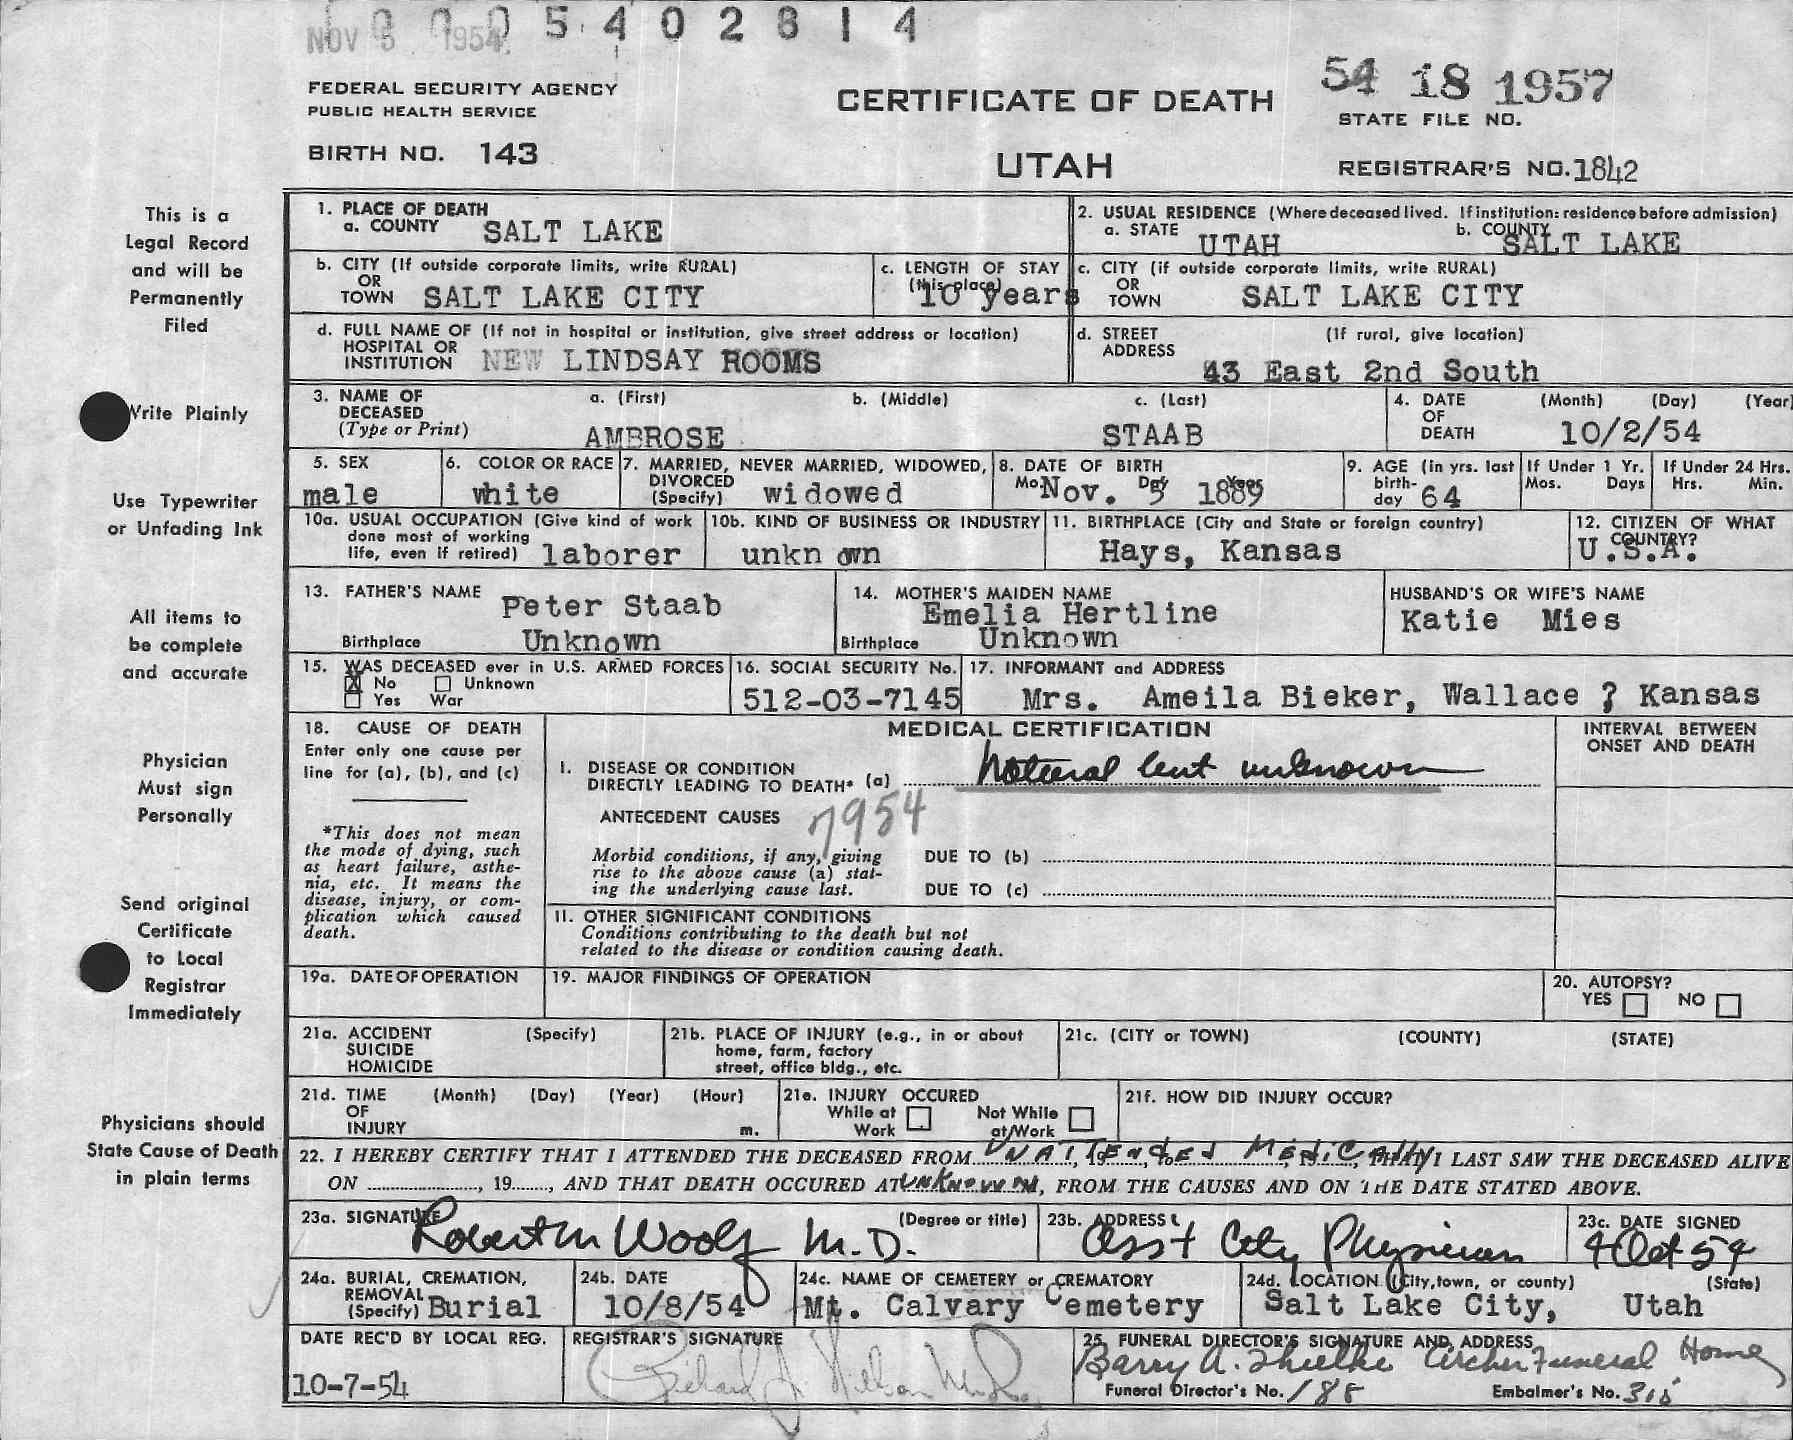 0005402814
NOV 5 1954
FEDERAL SECURITY AGENCY
PUBLIC HEALTH SERVICE
BIRTH NO. 143
CERTIFICATE OF DEATH
UTAH
54 18 1957
STATE FILE NO.
REGISTRAR'S NO. 1842
This is a
Legal Record
and will be
Permanently
Filed
Write Plainly
Use Typewriter
or Unfading Ink
All items to
be complete
and accurate
Physician
Must sign
Personally
Send original
Certificate
to Local
Registrar
Immediately
Physicians should
State Cause of Death
in plain terms
1. PLACE OF DEATH
a. COUNTY SALT LAKE
2. USUAL RESIDENCE (Where deceased lived. If institution: residence before admission)
a. STATE UTAH b. COUNTY SALT LAKE
b. CITY (If outside corporate limits, write RURAL)
OR
TOWN SALT LAKE CITY
c. LENGTH OF STAY
(this place) 10 years
c. CITY (if outside corporate limits, write RURAL)
OR
TOWN SALT LAKE CITY
d. FULL NAME OF (If not in hospital or institution, give street address or location)
HOSPITAL OR
INSTITUTION NEW LINDSAY ROOMS
d. STREET (If rural, give location)
ADDRESS
43 East 2nd South
3. NAME OF a. (First) b. (Middle) c. (Last)
DECEASED
(Type or Print) AMBROSE STAAB
4. DATE (Month) (Day) (Year)
OF
DEATH 10/2/54
5. SEX
male
6. COLOR OR RACE
white
7. MARRIED, NEVER MARRIED, WIDOWED,
DIVORCED
(Specify) widowed
8. DATE OF BIRTH
Mo. Day Year
Nov. 5 1889
9. AGE (in yrs. last
birth-
day 64
If Under 1 Yr.
Mos. Days
If Under 24 Hrs.
Hrs. Min.
10a. USUAL OCCUPATION (Give kind of work
done most of working
life, even if retired) laborer
10b. KIND OF BUSINESS OR INDUSTRY
unkn own
11. BIRTHPLACE (City and State or foreign country)
Hays, Kansas
12. CITIZEN OF WHAT
COUNTRY?
U.S.A.
13. FATHER'S NAME Peter Staab
Birthplace Unknown
14. MOTHER'S MAIDEN NAME
Emelia Hertline
Birthplace Unknown
HUSBAND'S OR WIFE'S NAME
Katie Mies
15. WAS DECEASED ever in U.S. ARMED FORCES
X No Unknown
Yes War
16. SOCIAL SECURITY No.
512-03-7145
17. INFORMANT and ADDRESS
Mrs. Ameila Bieker, Wallace ? Kansas
18. CAUSE OF DEATH
Enter only one cause per
line for (a), (b), and (c)
*This does not mean
the mode of dying, such
as heart failure, asthe-
nia, etc. It means the
disease, injury, or com-
plication which caused
death.
MEDICAL CERTIFICATION
INTERVAL BETWEEN
ONSET AND DEATH
I. DISEASE OR CONDITION
DIRECTLY LEADING TO DEATH* (a) Natural but unknown
ANTECEDENT CAUSES 7954
Morbid conditions, if any, giving
rise to the above cause (a) stat-
ing the underlying cause last.
DUE TO (b)
DUE TO (c)
II. OTHER SIGNIFICANT CONDITIONS
Conditions contributing to the death but not
related to the disease or condition causing death.
19a. DATE OF OPERATION
19. MAJOR FINDINGS OF OPERATION
20. AUTOPSY?
YES NO
21a. ACCIDENT (Specify)
SUICIDE
HOMICIDE
21b. PLACE OF INJURY (e.g., in or about
home, farm, factory
street, office bldg., etc.
21c. (CITY or TOWN) (COUNTY) (STATE)
21d. TIME (Month) (Day) (Year) (Hour)
OF
INJURY m.
21e. INJURY OCCURED
While at Work Not While at Work
21f. HOW DID INJURY OCCUR?
22. I HEREBY CERTIFY THAT I ATTENDED THE DECEASED FROM UNATTENDED MEDICALLY, THAT I LAST SAW THE DECEASED ALIVE
ON , 19 , AND THAT DEATH OCCURED AT UNKNOWN M, FROM THE CAUSES AND ON THE DATE STATED ABOVE.
23a. SIGNATURE (Degree or title)
Robert M Woolf M.D.
23b. ADDRESS
Ass't City Physician
23c. DATE SIGNED
4 Oct 54
24a. BURIAL, CREMATION,
REMOVAL
(Specify) Burial
24b. DATE
10/8/54
24c. NAME OF CEMETERY or CREMATORY
Mt. Calvary Cemetery
24d. LOCATION (City, town, or county) (State)
Salt Lake City, Utah
DATE REC'D BY LOCAL REG.
10-7-54
REGISTRAR'S SIGNATURE
25. FUNERAL DIRECTOR'S SIGNATURE AND ADDRESS
Barry A. Archer Funeral Home
Funeral Director's No. 188
Embalmer's No.